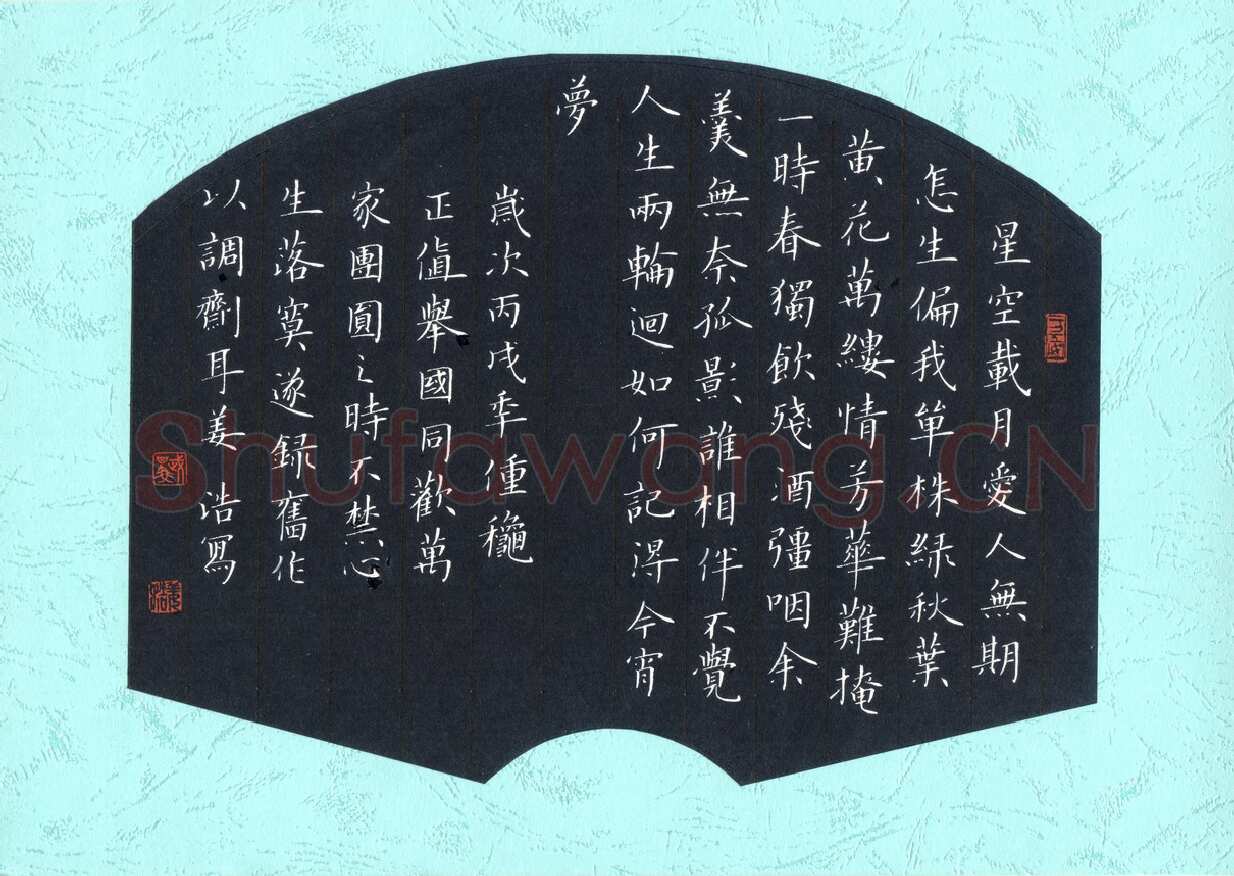 星空載月愛人無期
怎生偏我單株綠秋葉
黃花萬縷情芳華難掩
一時春獨飲殘酒彊咽余
羹無奈孤影誰相伴不覺
人生兩輪迴如何記得今宵
夢
歲次丙戌季僮龝
正值舉國同歡萬
家團圓之時不禁心
生落寞遂録舊作
以調劑耳姜浩寫
Shufawang.CN